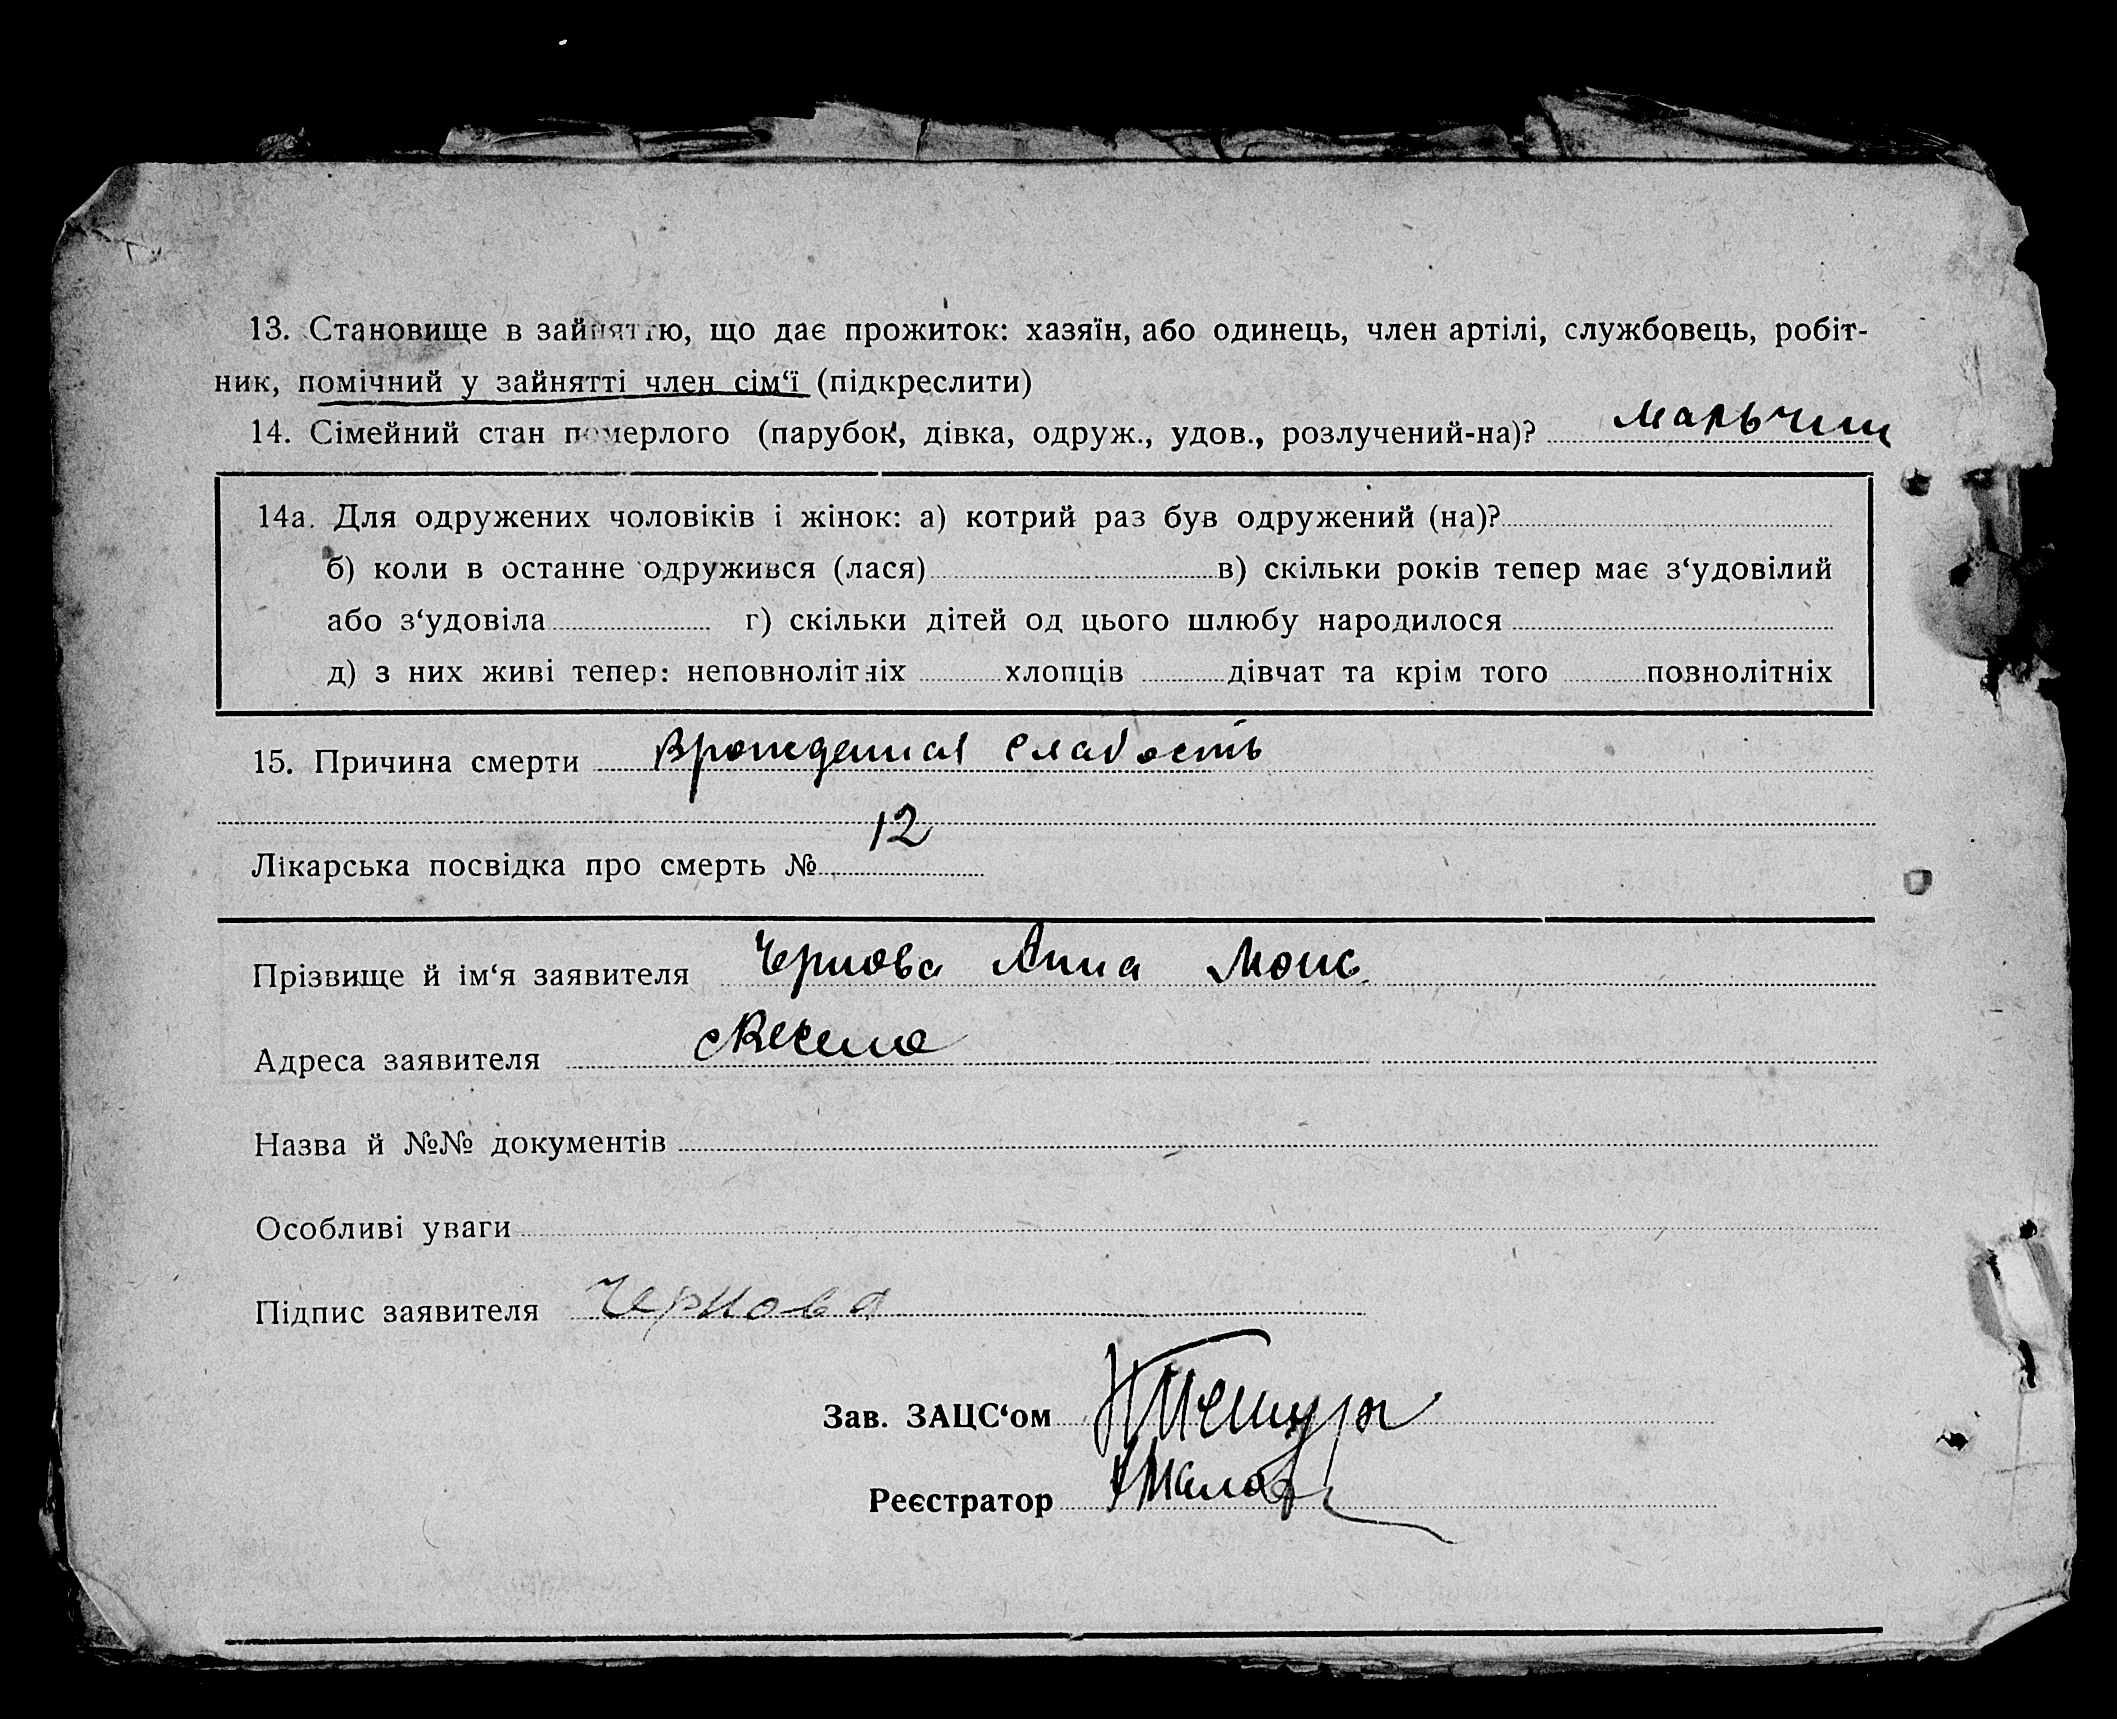 13. Становище в зайняттю, що дає прожиток: хазяїн, або одинець, член артілі, службовець, робіт-
ник, помічний у зайнятті член сім‘ї (підкреслити)
14. Сімейний стан померлого (парубок, дівка, одруж., удов., розлучений-на)?
14а. Для одружених чоловіків і жінок: а) котрий раз був одружений (на)?
б) коли в останне одружився (лася) в) скільки років тепер має з‘удовілий
або з‘удовіла г) скільки дітей од цього шлюбу народилося
д) з них живі тепер: неповнолітніх хлопців дівчат та крім того повнолітніх
15. Причина смерти Врожденная слабость
Лікарська посвідка про смерть № 12
Прізвище й ім‘я заявителя Чернова Анна Моис.
Адреса заявителя
Назва й №№ документів
Особливі уваги
Підпис заявителя Чернова
Зав. ЗАЦС‘ом
Реєстратор